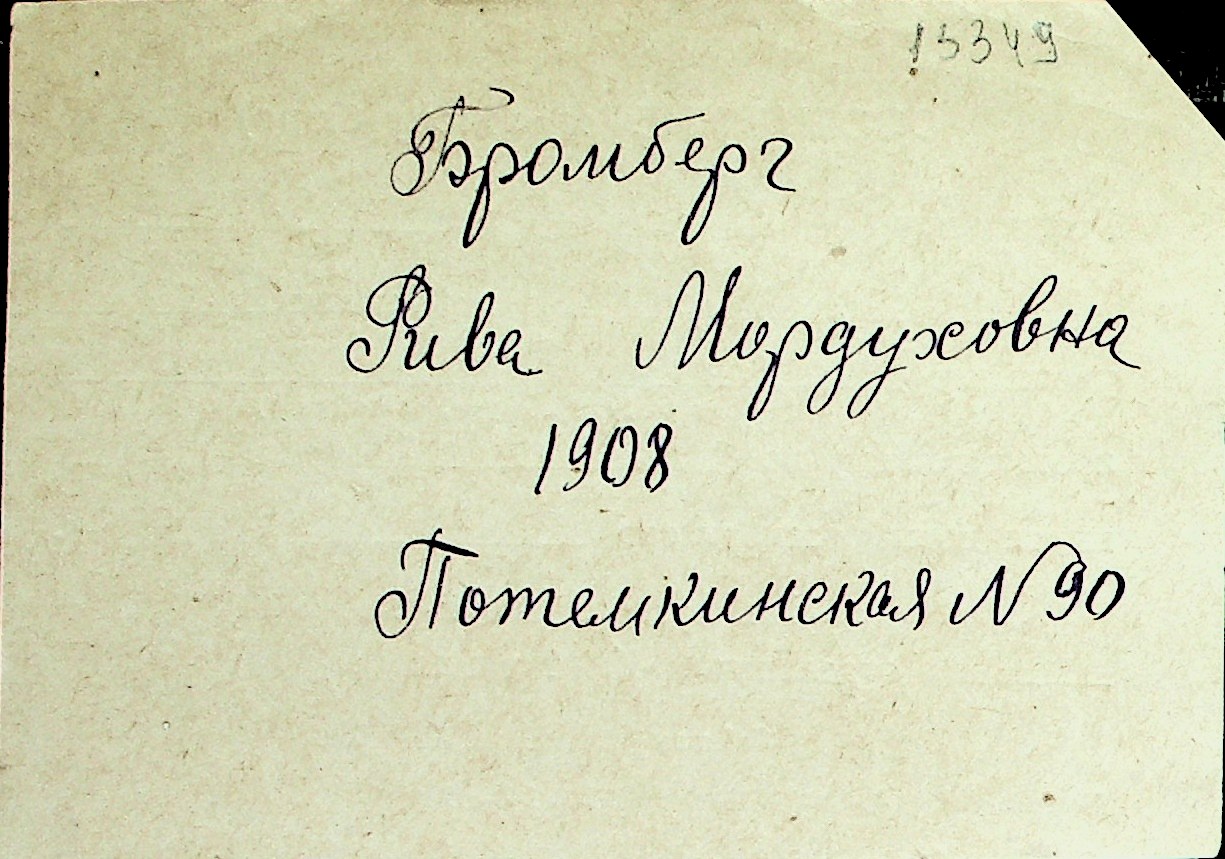 13349
Бромберг
Рива Мордуховна
1908
Потемкинская N 90